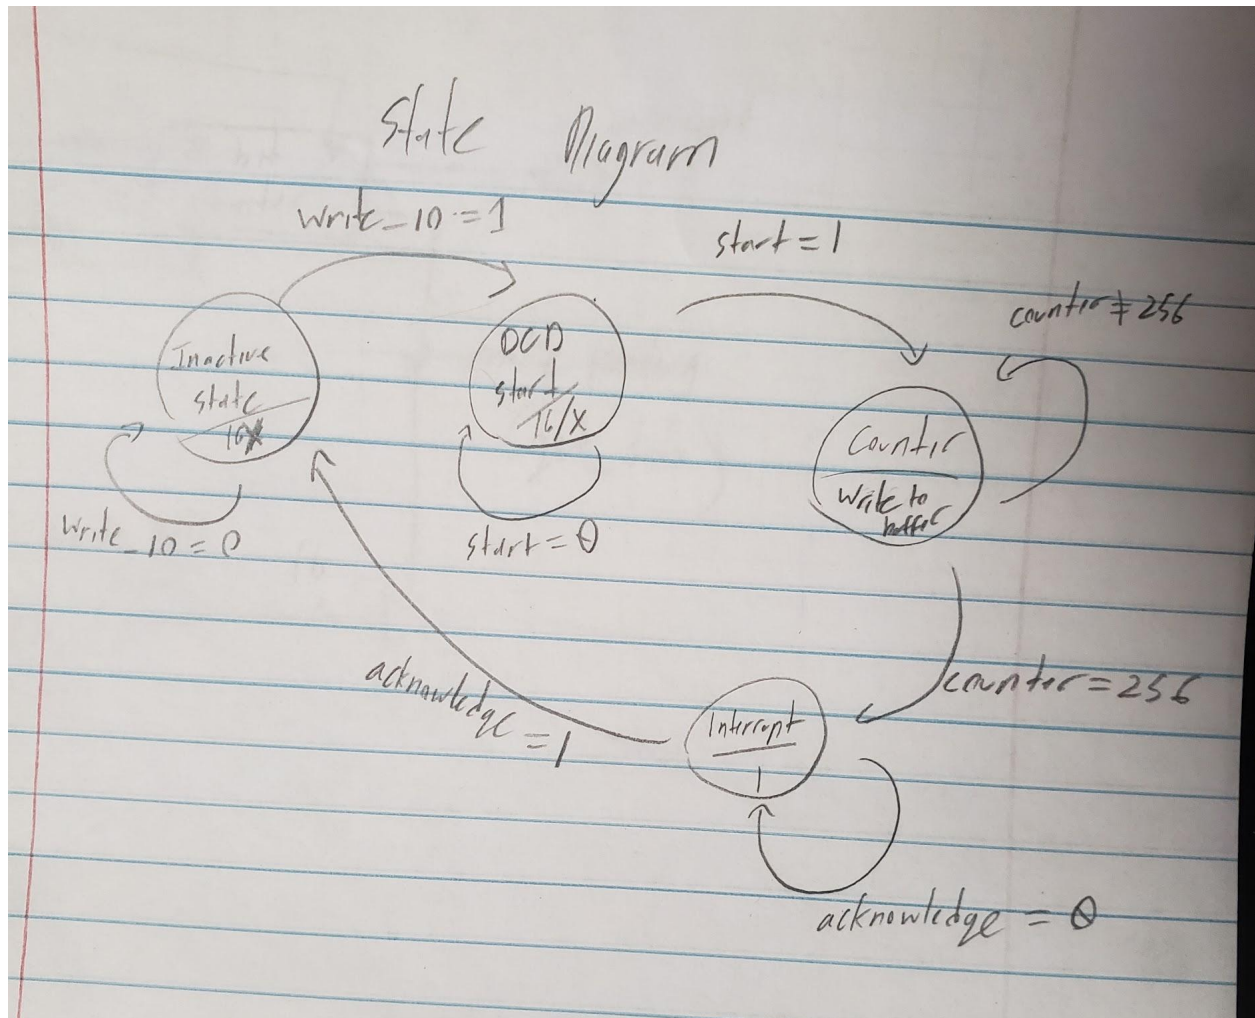 State Diagram
write_10 = 1
start = 1
counter ≠ 256
Inactive
state
16
OCD
start
16/X
Counter
write to
buffer
write_10 = 0
start = 0
counter = 256
acknowledge
= 1
Interrupt
1
acknowledge = 0